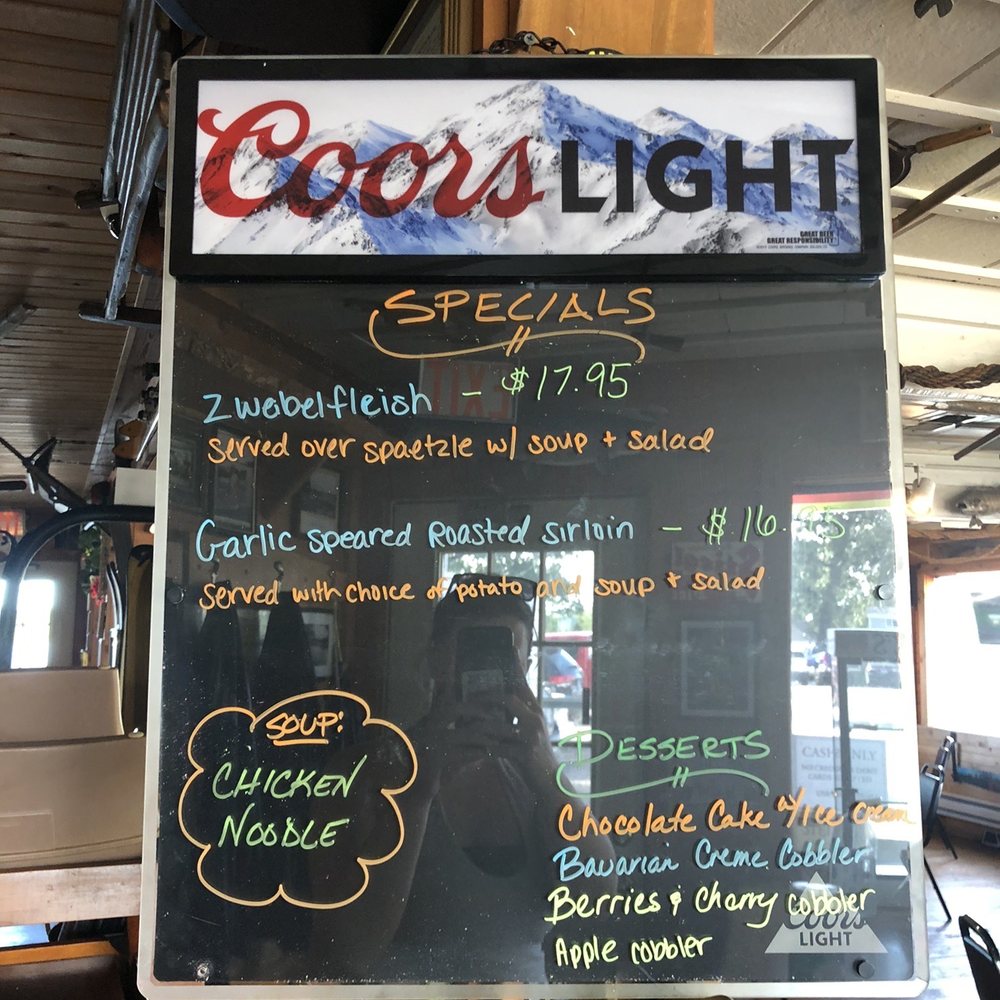 Coors LIGHT
GREAT BEER
GREAT RESPONSIBILITY
SPECIALS
Zwebelfleish - $17.95
served over spaetzle w/ soup + salad
Garlic speared Roasted sirloin - $16.95
served with choice of potato and soup + salad
SOUP:
CHICKEN
NOODLE
DESSERTS
Chocolate Cake w/Ice cream
Bavarian Creme Cobbler
Berries & Charry cobbler
Apple cobbler
Coors
LIGHT
EXIT
CASH ONLY